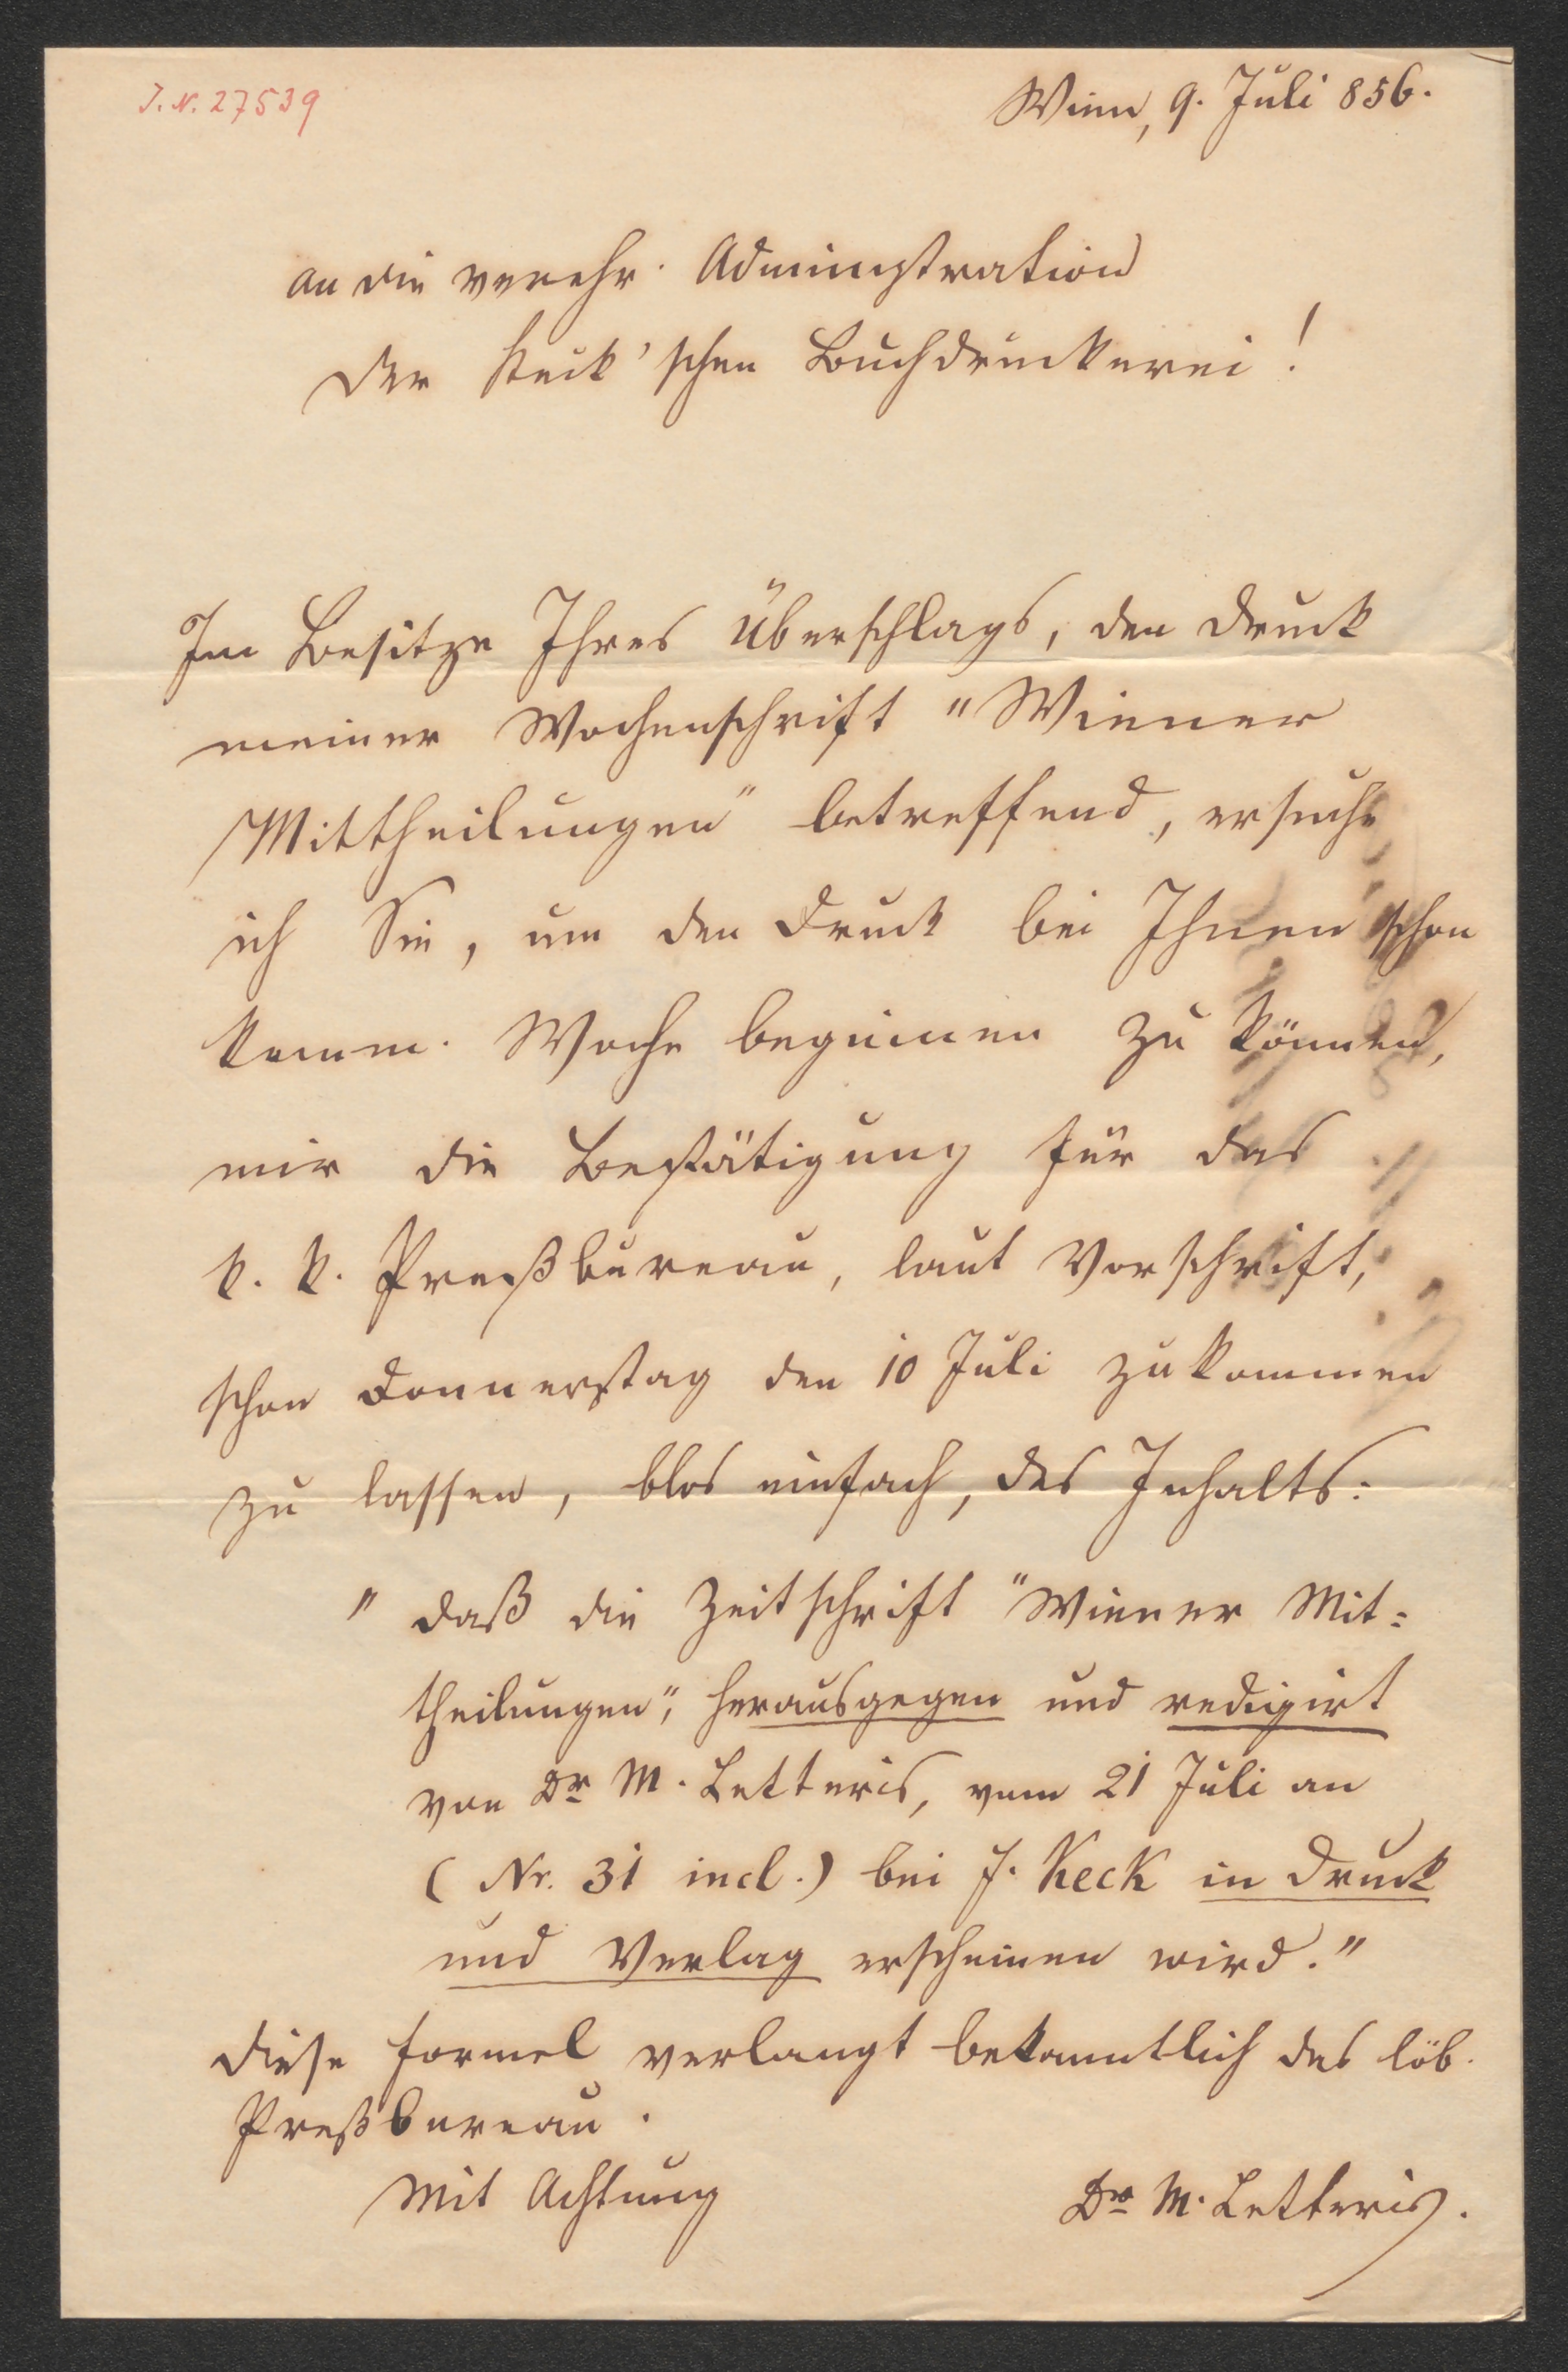 J. N. 27539
Wien, 9. Juli 856.
An die verehr. Administration
der Keck'schen Buchdruckerei!
Im Besitze Ihres Überschlags, den Druck
meiner Wochenschrift "Wiener
Mittheilungen" betreffend, ersuche
ich Sie, um den Druck bei Ihnen schon
komm. Woche beginnen zu können,
mir die Bestätigung für das
k. k. Preßbureau, laut Vorschrift,
schon Donnerstag den 10 Juli zukommen
zu lassen, blos einfach, des Inhalts:
"daß die Zeitschrift "Wiener Mit-
theilungen", herausgegen und redigirt
von Dr M. Letteris, vom 21 Juli an
(Nr. 31 incl.) bei J. Keck in Druck
und Verlag erscheinen wird."
Diese Formel verlangt bekanntlich das löb.
Preßbureau.
Mit Achtung
Dr M. Letteris.